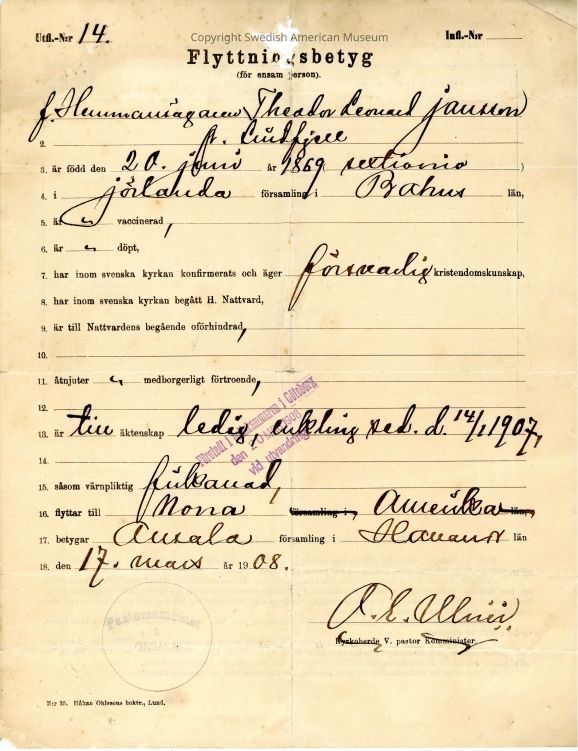 Copyright Swedish American Museum
Utfl.-N:r 14. Infl.-N:r
Flyttningsbetyg
(för ensam person).
f. Hemmansägaren Theodor Leonard Jansson
2.
3. är född den 20. juni år 1869 (sextionio)
4. i Jörlanda församling i Bahus län,
5. är " vaccinerad,
6. är " döpt,
7. har inom svenska kyrkan konfirmerats och äger försvarlig kristendomskunskap,
8. har inom svenska kyrkan begått H. Nattvard,
9. är till Nattvardens begående oförhindrad,
10.
11. åtnjuter " medborgerligt förtroende,
12.
13. är till äktenskap ledig, enkling sed. d. 14/1 1907,
14.
15. såsom värnpliktig frikallad,
16. flyttar till Norra församling i Amerika län,
17. betygar Onsala församling i Hallands län
18. den 17. mars år 1908.
Företedt i Göteborg
den 20 Mar 1908
vid utvandring
Kyrkoherde V. pastor Komminister.
Pastorsämbetet
i
ONSALA
N:r 25. Håkan Ohlssons boktr., Lund.